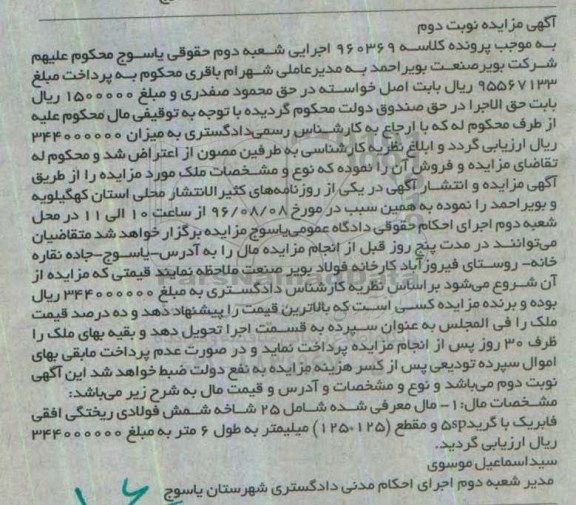 آگهی مزایده نوبت دوم
به موجب پرونده کلاسه ۹۶۰۳۶۹ اجرایی شعبه دوم حقوقی یاسوج محکوم علیهم
شرکت بویرصنعت بویراحمد به مدیرعاملی شهرام باقری محکوم به پرداخت مبلغ
۹۵۵۶۷۱۳۳ ریال بابت اصل خواسته در حق محمود صفدری و مبلغ ۱۵۰۰۰۰۰ ریال
بابت حق الاجرا در حق صندوق دولت محکوم گردیده با توجه به توقیفی مال محکوم علیه
از طرف محکوم له که با ارجاع به کارشناس رسمی‌دادگستری به میزان ۳۴۴۰۰۰۰۰۰
ریال ارزیابی گردد و ابلاغ نظریه کارشناسی به طرفین مصون از اعتراض شد و محکوم له
تقاضای مزایده و فروش آن را نموده که نوع و مشخصات ملک مورد مزایده را از طریق
آگهی مزایده و انتشار آگهی در یکی از روزنامه‌های کثیرالانتشار محلی استان کهگیلویه
و بویراحمد را نموده به همین سبب در مورخ ۹۶/۰۸/۰۸ از ساعت ۱۰ الی ۱۱ در محل
شعبه دوم اجرای احکام حقوقی دادگاه عمومی‌یاسوج مزایده برگزار خواهد شد متقاضیان
می‌توانند در مدت پنج روز قبل از انجام مزایده مال را به آدرس-یاسوج-جاده نقاره
خانه- روستای فیروزآباد کارخانه فولاد بویر صنعت ملاحظه نمایند قیمتی که مزایده از
آن شروع می‌شود براساس نظریه کارشناس دادگستری به مبلغ ۳۴۴۰۰۰۰۰۰ ریال
بوده و برنده مزایده کسی است که بالاترین قیمت را پیشنهاد دهد و ده درصد قیمت
ملک را فی المجلس به عنوان سپرده به قسمت اجرا تحویل دهد و بقیه بهای ملک را
ظرف ۳۰ روز پس از انجام مزایده پرداخت نماید و در صورت عدم پرداخت مابقی بهای
اموال سپرده تودیعی پس از کسر هزینه مزایده به نفع دولت ضبط خواهد شد این آگهی
نوبت دوم می‌باشد و نوع و مشخصات و آدرس و قیمت مال به شرح زیر می‌باشد:
مشخصات مال:۱- مال معرفی شده شامل ۲۵ شاخه شمش فولادی ریختگی افقی
فابریک با گرید5sp و مقطع (۱۲۵۰۱۲۵) میلیمتر به طول ۶ متر به مبلغ ۳۴۴۰۰۰۰۰۰
ریال ارزیابی گردید.
سیداسماعیل موسوی
مدیر شعبه دوم اجرای احکام مدنی دادگستری شهرستان یاسوج